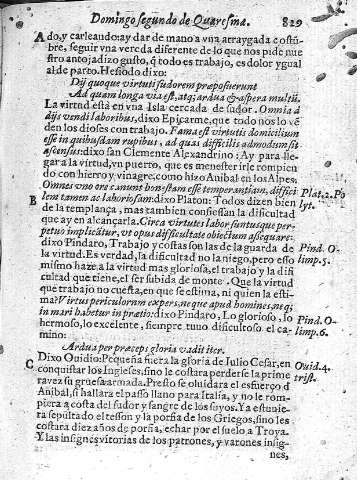 Domingo segundo de Quaresma. 829
A do, y carleando: ay dar de mano a vna arraygada costũ-
bre, seguir vna vereda diferente de lo que nos pide nue
stro antojadizo gusto, q̃ todo es trabajo, es dolor ygual
al de parto. Hesiodo dixo:
Dij quoque virtuti sudorem præposuerunt
Ad quam longa via est, atq; ardua & aspera multũ.
La virtud està en vna Isla cercada de sudor. Omnia à
dijs vendi laboribus, dixo Epicarme, que todo nos lo vẽ
den los dioses con trabajo. Fama est virtutis domicilium
esse in quibusdam rupibus, ad quas difficilis admodum sit
ascensus: dixo san Clemente Alexandrino: Ay para lle-
gar a la virtud, vn puerto, que es menester irle rompien
do con hierro y vinagre, como hizo Anibal en los Alpes,
Omnes vno ore canunt honestam esse temperantiam, difici
lem tamen ac laboriosam: dixo Platon: Todos dizen bien Plat. 2. Po
B de la templança, mas tambien confiessan la dificultad lyt.
que ay en alcançarla. Circa virtutes labor sumtusque per-
petuo implicatur, vt opus difficultate obiectum assequare:
dixo Pindaro, Trabajo y costas son las de la guarda de Pind. O-
la virtud. Es verdad, la dificultad no la niego, pero esso limp. 5.
mismo haze a la virtud mas gloriosa, el trabajo y la difi
cultad que tiene, el ser subida de monte. Que la virtud
que trabajo no cuesta, en que se estima, ni quien la esti-
ma? Virtus periculorum expers, neque apud homines, neq;
in mari habetur in prætio: dixo Pindaro, Lo glorioso, lo Pind. O-
hermoso, lo excelente, siempre tuuo dificultoso el ca- limp. 6.
mino:
Ardua per præceps gloria vadit iter.
C Dixo Ouidio: Pequeña fuera la gloria de Iulio Cesar, en Ouid. 4.
conquistar los Ingleses, sino le costara perderse la prime trist.
ra vez su gruessa armada. Presto se oluidara el esfuerço d̃
Anibal, si hallara el passo llano para Italia, y no le rom-
piera a costa del sudor y sangre de los suyos. Ya estuuie
ra sepultado el tesson y la porfia de los Griegos, sino les
costara diez años de porfia, echar por el suelo a Troya.
Y las insignes vitorias de los patrones, y varones insig-
nes,